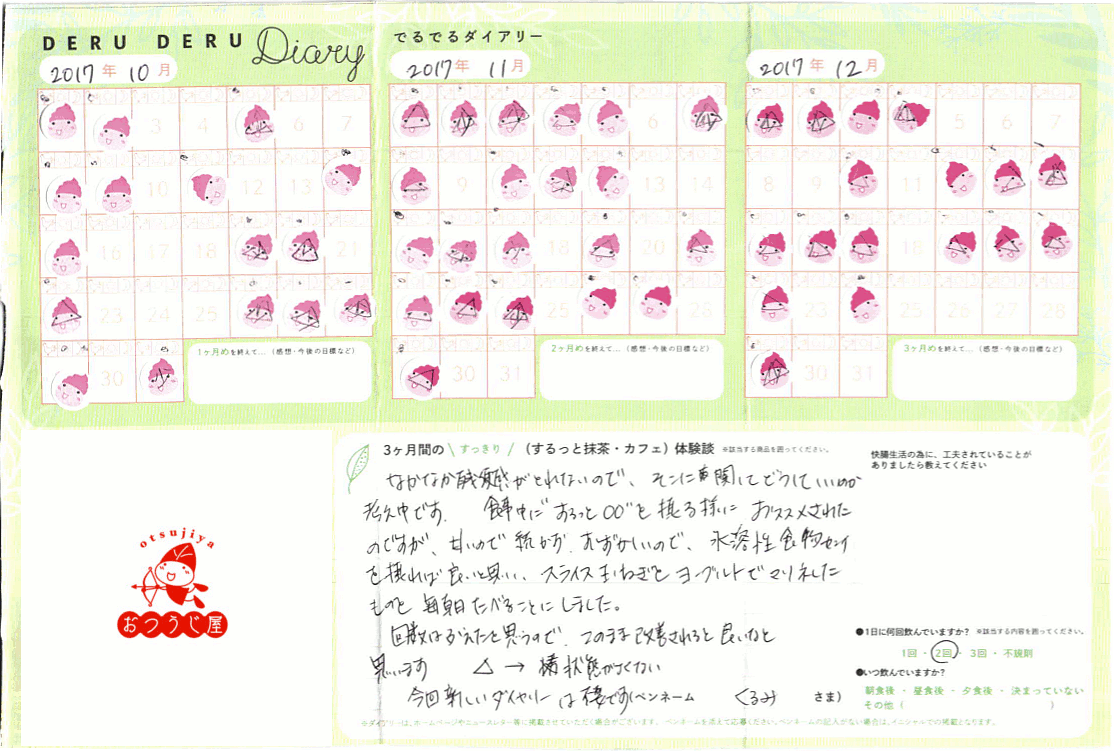 DERU DERU Diary でるでるダイアリー
2017年 10月
2017年 11月
2017年 12月
3 4 6 7
10 12 13
16 17 18 21
23 24 25
30
1ヶ月めを終えて…（感想・今後の目標など）
6
9 13 14
18 20
25 28
30 31
2ヶ月めを終えて…（感想・今後の目標など）
5 6 7
8 9 11
18
23 25 26 27 28
30 31
3ヶ月めを終えて…（感想・今後の目標など）
3ヶ月間の\すっきり/（するっと抹茶・カフェ）体験談 ※該当する商品を囲ってください。
なかなか残便感がとれないので、そこに関してどうしていいのか
考え中です。食事中に"するっと〇〇"を摂る様に おススメされた
のですが、甘いので むずかしいので、水溶性食物センイ
を摂れば良いと思い、スライス玉ねぎとヨーグルトでマリネした
ものを毎朝たべることにしました。
回数はふえたと思うので、このまま改善されると良いなと
思います △→ 状態がよくない
今回新しいダイヤリーは です(ペンネーム くるみ さま)
※ダイアリーは、ホームページやニュースレター等に掲載させていただく場合がございます。ペンネームを添えて応募ください。ペンネームの記入がない場合は、イニシャルでの掲載となります。
快腸生活の為に、工夫されていることが
ありましたら教えてください
●1日に何回飲んでいますか？ ※該当する内容を囲ってください。
1回・2回・3回・不規則
●いつ飲んでいますか？
朝食後・昼食後・夕食後・決まっていない
その他（ ）
otsujiya
おつうじ屋